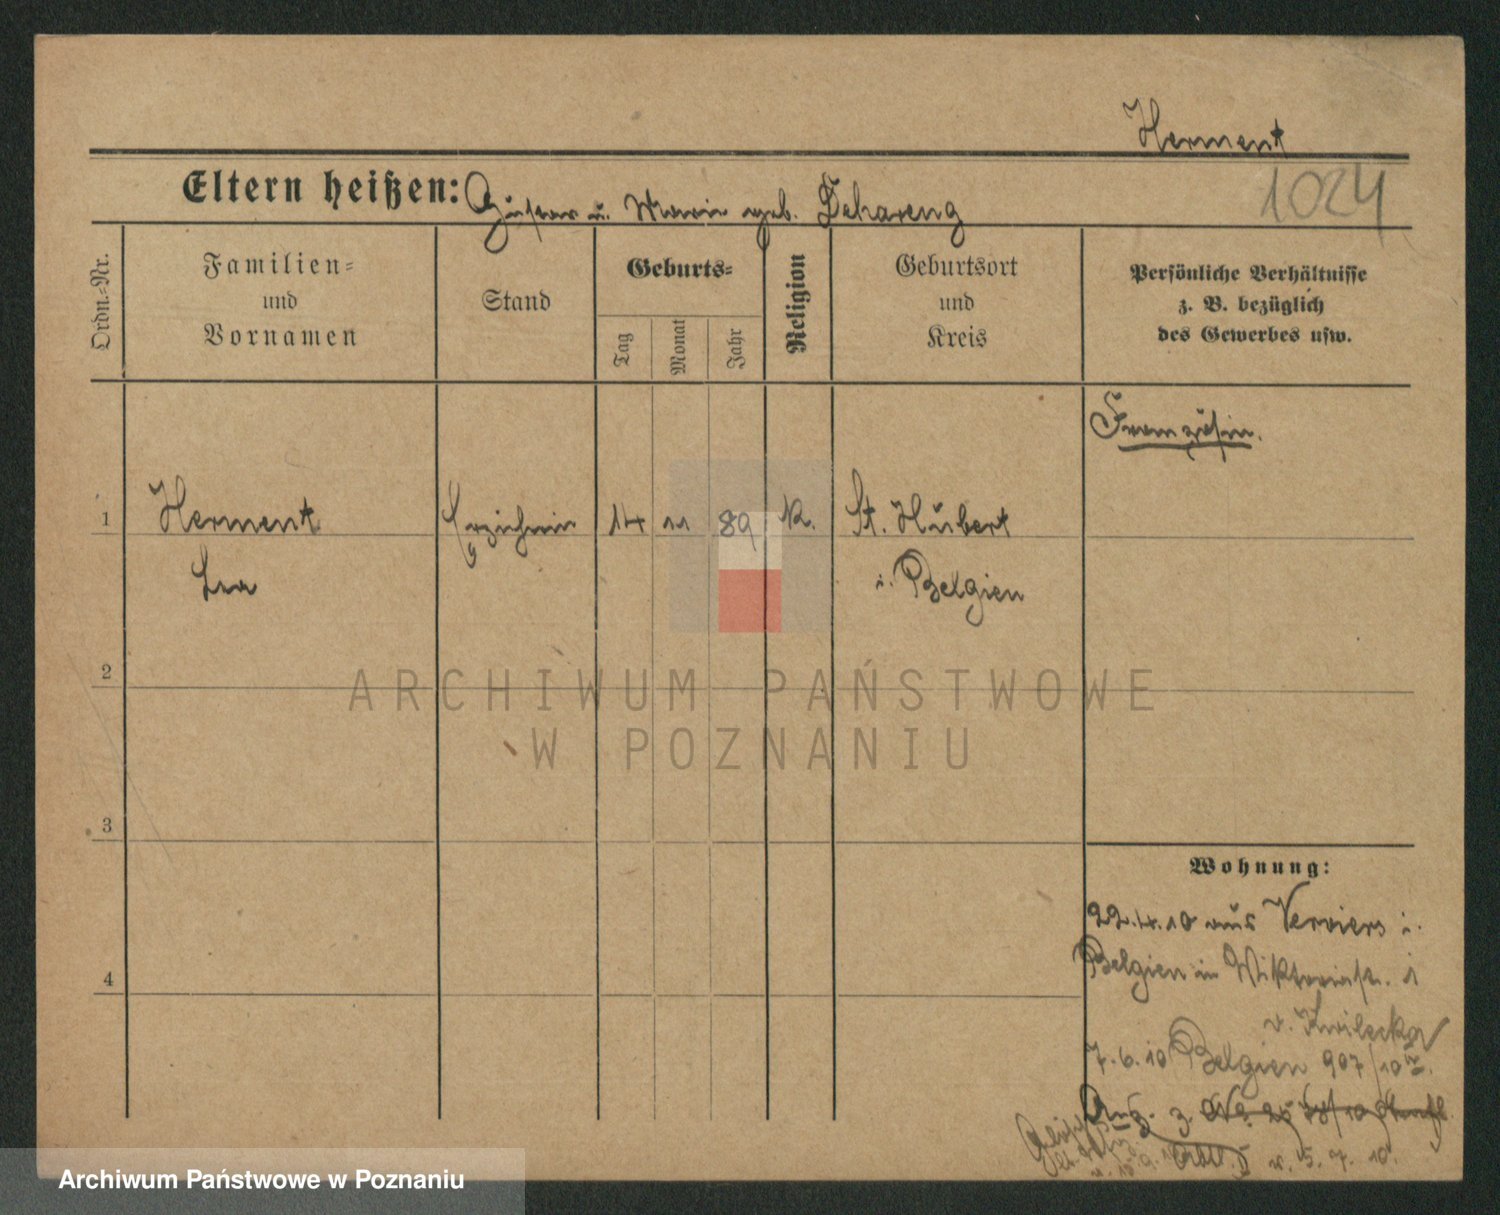 Herment
1024
Eltern heißen: Gustav u. Marie geb. Dehareng
Ordn.-Nr.
Familien-
und
Vornamen
Stand
Geburts-
Tag
Monat
Jahr
Religion
Geburtsort
und
Kreis
Persönliche Verhältnisse
z. B. bezüglich
des Gewerbes usw.
Französin.
1
Herment
Erzieherin
14
11
89
k.
St. Hubert
Lea
i. Belgien
2
ARCHIWUM PAŃSTWOWE
W POZNANIU
3
Wohnung:
22.4.10 aus Verviers i.
Belgien in Viktoriastr. 1
4
v. Kwilecka
7.6.10 Belgien 907/10 IV.
v. 5. 7. 10.
Archiwum Państwowe w Poznaniu